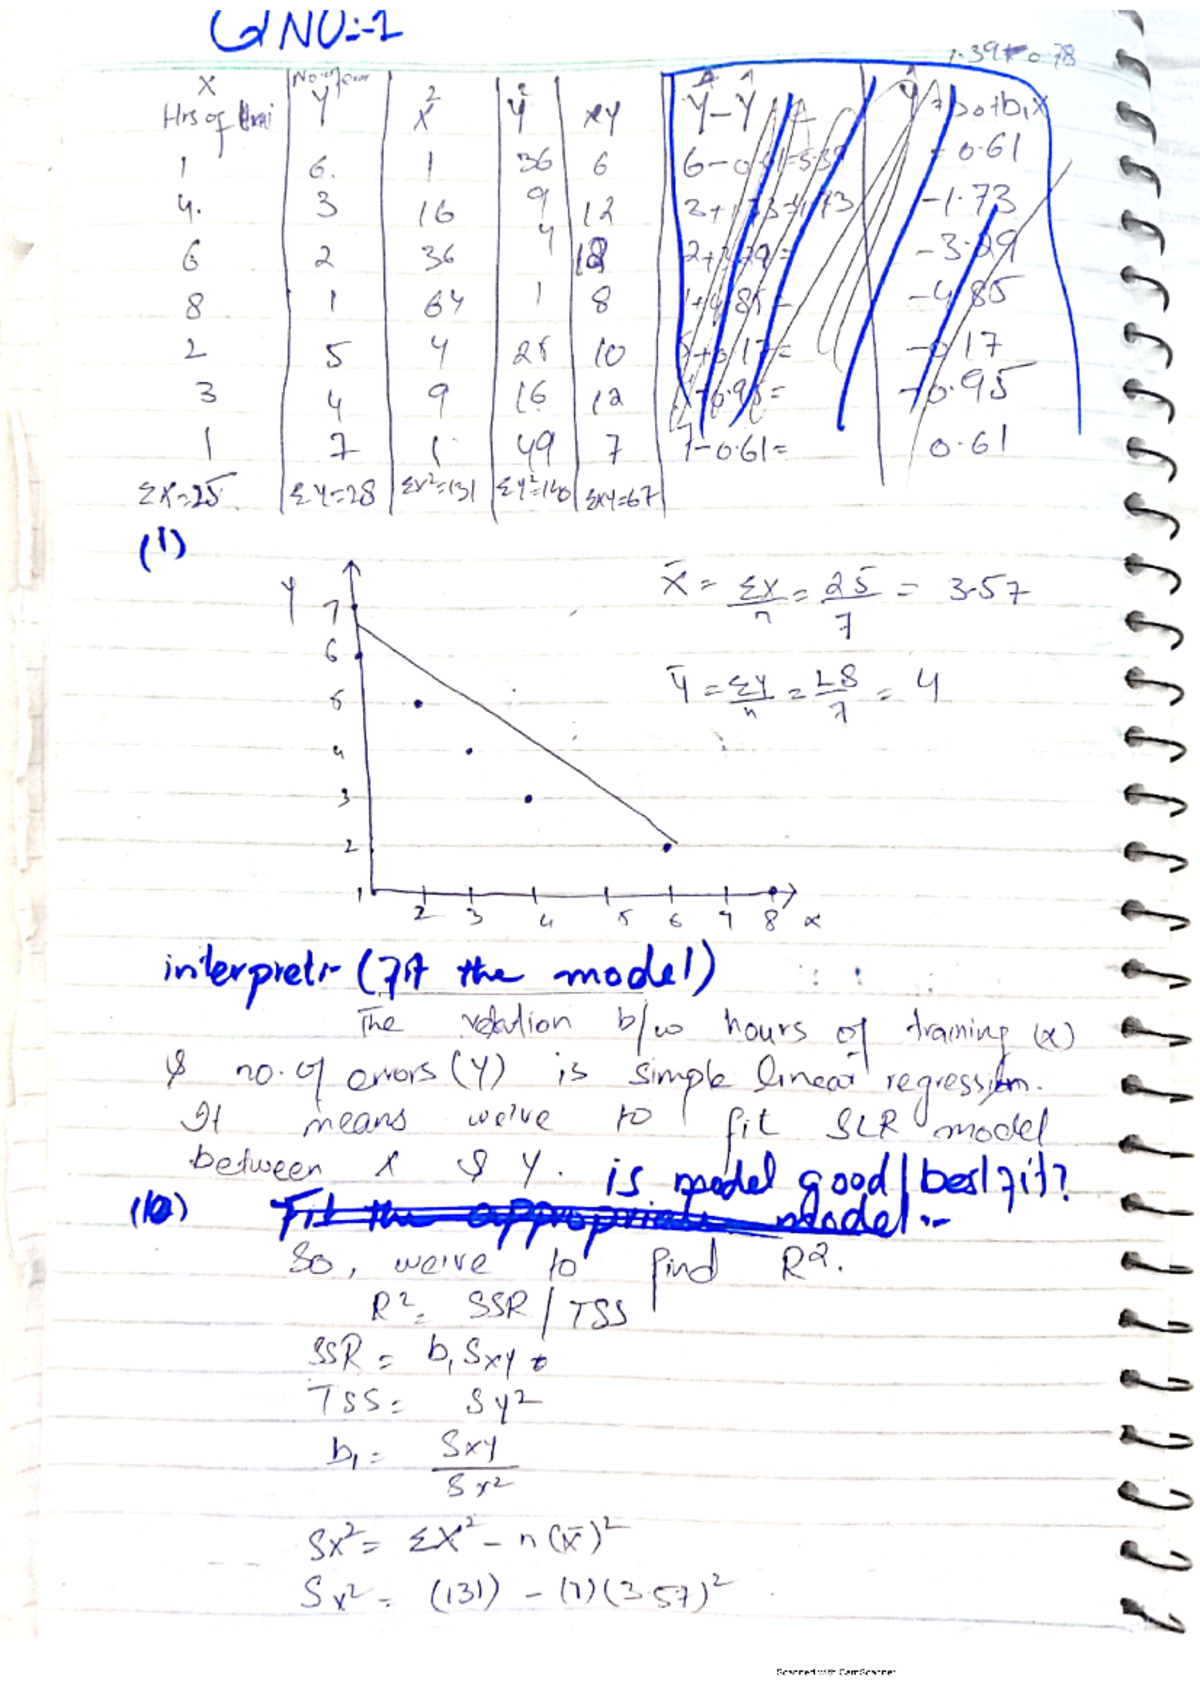 Q NO:-1
1.39 - 0.78
X Hrs of trai | No. of error Y | X² | Y² | XY | Y - Ŷ | Ŷ = b0+b1X
1 | 6. | 1 | 36 | 6 | 6-0.61=5.39 | 0.61
4. | 3 | 16 | 9 | 12 | 3+1.73=4.73 | -1.73
6 | 2 | 36 | 4 | 12 | 2+3.29= | -3.29
8 | 1 | 64 | 1 | 8 | 1+4.85= | -4.85
2 | 5 | 4 | 25 | 10 | 5+0.17= | -0.17
3 | 4 | 9 | 16 | 12 | -0.95= | -0.95
1 | 7 | 1 | 49 | 7 | 7-0.61= | 0.61
ΣX=25 | ΣY=28 | ΣX²=131 | ΣY²=140 | ΣXY=67
(1)
X̄ = ΣX/n = 25/7 = 3.57
Ȳ = ΣY/n = 28/7 = 4
Y
7
6
5
4
3
2
1 2 3 4 5 6 7 8 x
interpret:- (Fit the model)
The relation b/w hours of training (x)
& no. of errors (Y) is simple linear regression.
It means we've to fit SLR model
between X & Y. is model good/best fit?
Fit the appropriate model:-
So, we've to find R².
R² = SSR/TSS
SSR = b₁Sxy
TSS = Sy²
b₁ = Sxy/Sx²
Sx² = ΣX² - n(x̄)²
Sx² = (131) - (7)(3.57)²
Scanned with CamScanner